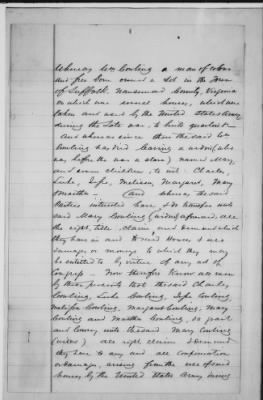 Whereas Wm Cowling a man of color
and free born owned a Lot in the Town
of Suffolk, Nansemond County, Virginia
on which were several houses, which were
taken and used by the United States Army
during the late war, to build quarters
And whereas since then the said Wm
Cowling has died leaving a widow (also
was, before the war a slave) named Mary,
and seven children, to wit: Charles,
Luke, Melissa, Margaret, Mary
Martha. And whereas the said
Parties interested have to transfer unto
said Mary Cowling (widow) aforesaid all
the right, title, claim and demand which
they have in and to said Houses & all
damage or money to which they may
be entitled to by virtue of any act of
Congress. Now therefore Know all men
by these presents that the said Charles
Cowling, Luke Cowling, Cowling,
Melissa Cowling, Margaret Cowling, Mary
Cowling and Martha Cowling, do grant
and convey unto the said Mary Cowling
(widow) all right claim & demand
they have to any and all compensation
or damage, arising from the use of said
houses, by the United States Army during